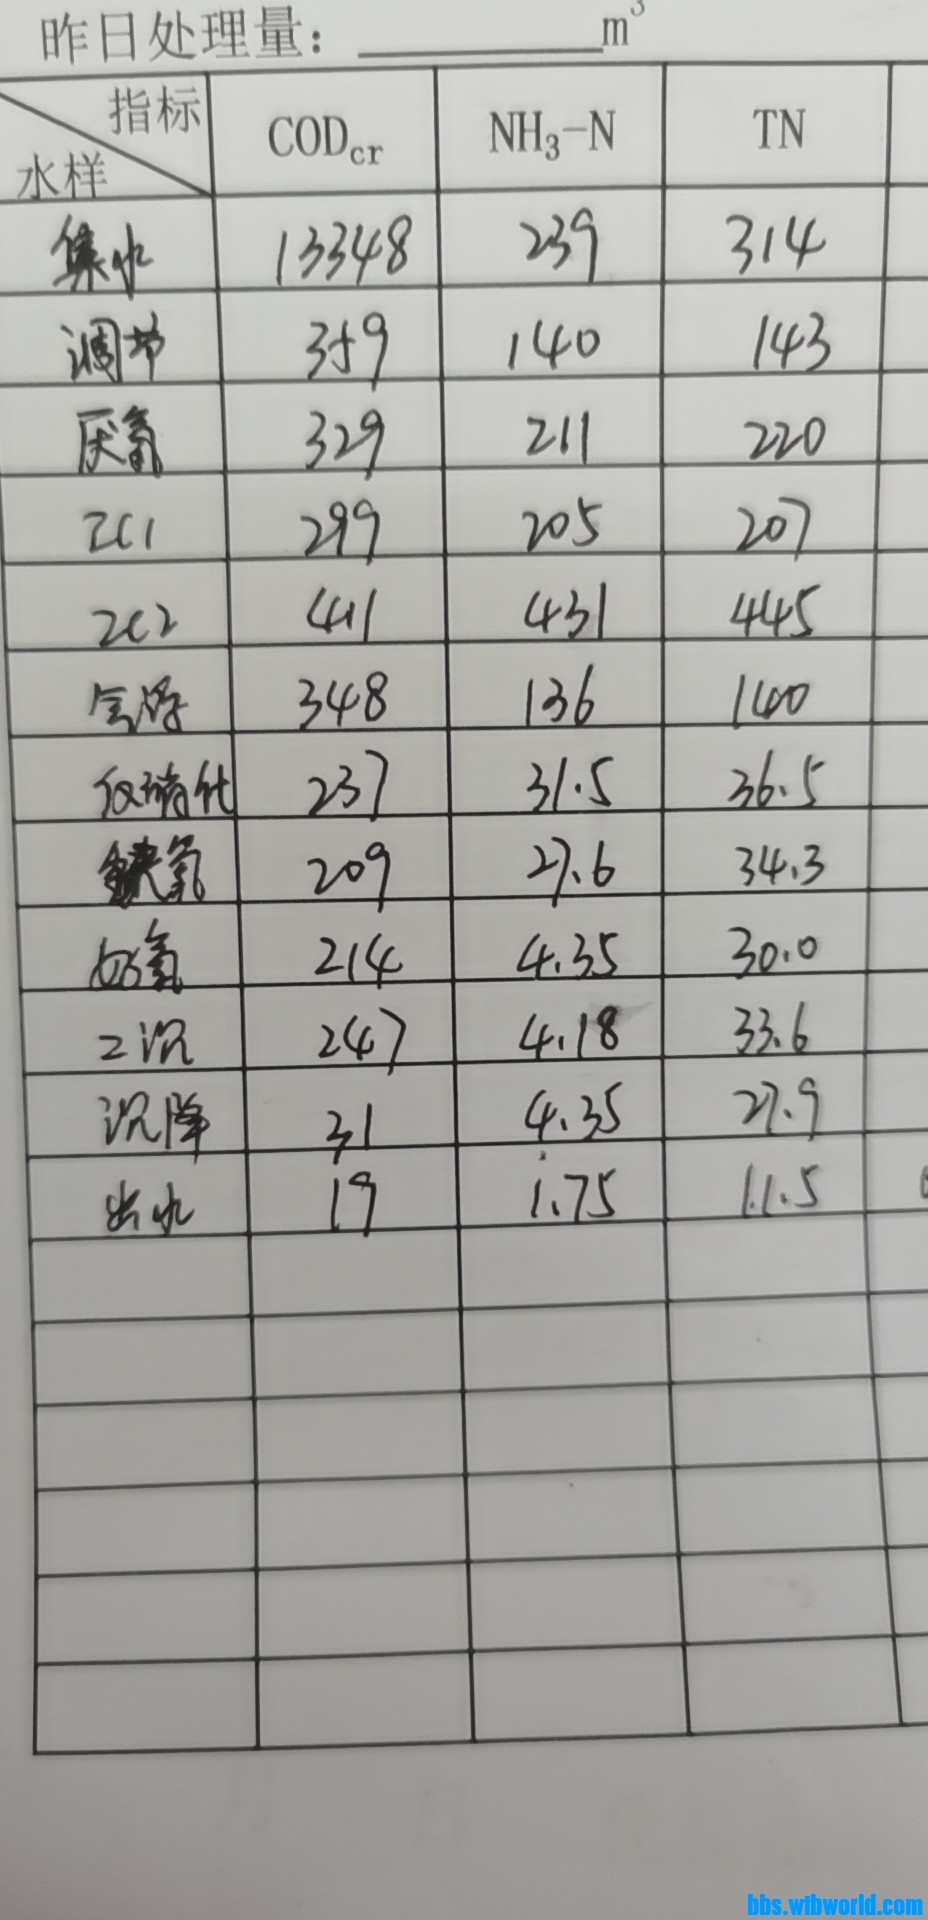 昨日处理量：________m³
指标 CODcr NH₃-N TN
水样
集水 13348 239 314
调节 359 140 143
厌氧 329 211 220
ZC1 299 205 207
ZC2 411 431 445
气浮 348 136 140
反硝化 237 31.5 36.5
缺氧 209 27.6 34.3
好氧 214 4.35 30.0
二沉 247 4.18 33.6
沉降 31 4.35 27.9
出水 19 1.75 11.5
bbs.wtbworld.com